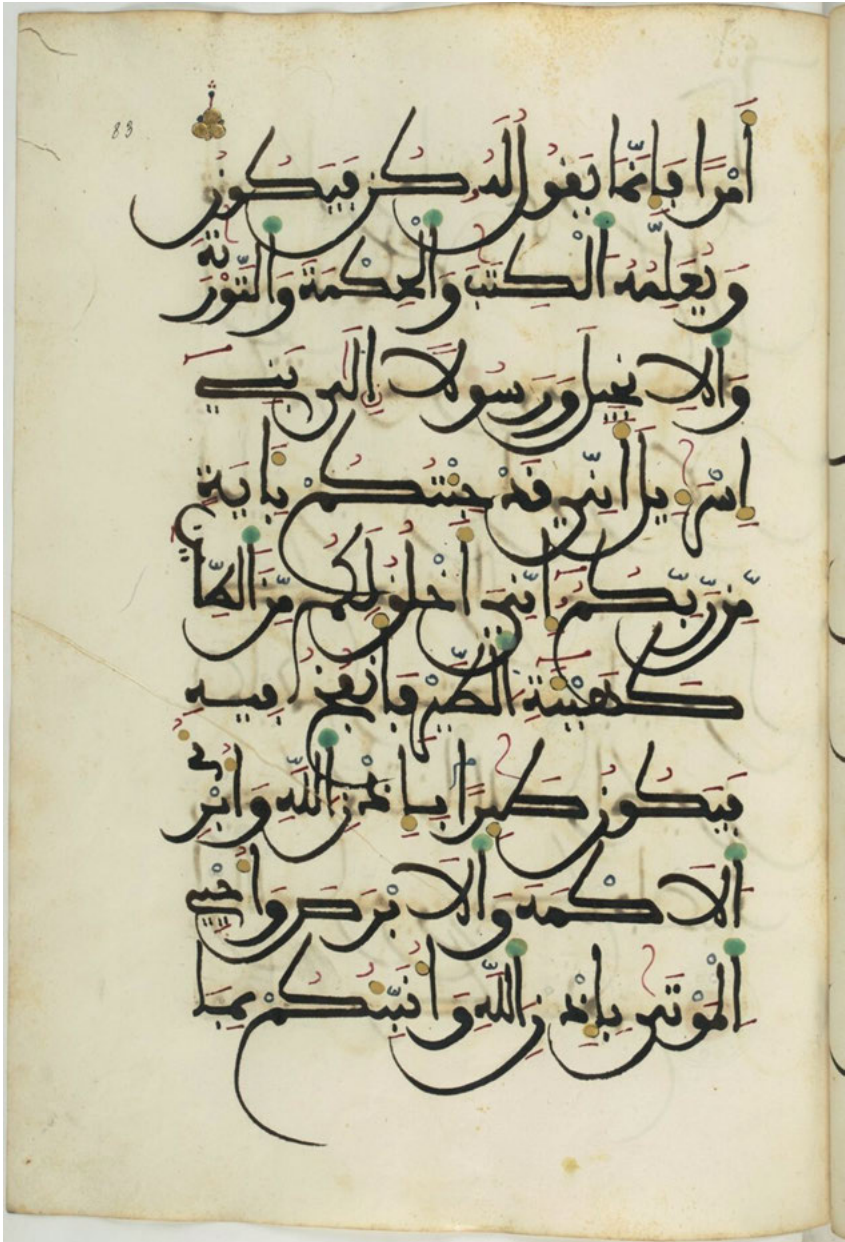 83
أَمْرًا فَإِنَّمَا يَقُولُ لَهُ كُن فَيَكُونُ
وَيُعَلِّمُهُ الْكِتَٰبَ وَالْحِكْمَةَ وَالتَّوْرَىٰةَ
وَالِانجِيلَ وَرَسُولًا اِلَىٰ بَنِي
إِسْرَٰءِيلَ أَنِّي قَدْ جِئْتُكُم بِـَٔايَةٍ
مِّن رَّبِّكُمْ إِنِّيَ أَخْلُقُ لَكُم مِّنَ الطِّينِ
كَهَيْـَٔةِ الطَّيْرِ فَأَنفُخُ فِيهِ
فَيَكُونُ طَٰئِرًا بِإِذْنِ اللَّهِ وَأُبْرِئُ
الَاكْمَهَ وَالَابْرَصَ وَأُحْيِ
الْمَوْتَىٰ بِإِذْنِ اللَّهِ وَأُنَبِّئُكُم بِمَا